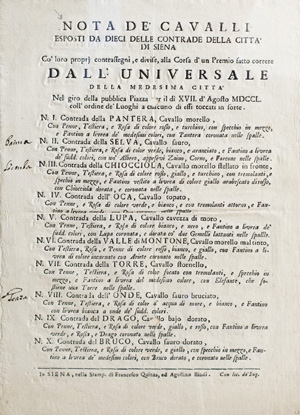 NOTA DE' CAVALLI
ESPOSTI DA DIECI DELLE CONTRADE DELLA CITTA'
DI SIENA
Co' loro proprj contrassegni, e divise, alla Corsa d' un Premio fatto correre
DALL' UNIVERSALE
DELLA MEDESIMA CITTA'
Nel giro della pubblica Piazza il dì XVII. d' Agosto MDCCL.
coll' ordine de' Luoghi a ciascuno di essi toccati in sorte.
N. I. Contrada della PANTERA, Cavallo morello,
Con Penne, Testiera, e Rosa di colore rosso, e turchino, con specchio in mezzo,
e Fantino a livrea de' medesimi colori, con Pantera coronata nelle spalle.
N. II. Contrada della SELVA, Cavallo sauro,
Con Penne, Testiera, e Rosa di color verde, bianco, e aranciato, e Fantino a livrea
de' sudd. colori, con un Albero, Corno, e nelle spalle.
N. III. Contrada della CHIOCCIOLA, Cavallo morello stellato in fronte,
Con Penne, Testiera, e Rosa di colore rosso, giallo, e turchino, con tremolanti, e
specchio in mezzo, e Fantino vestito a livrea di colore giallo arabescato
con Chiocciola dorata, e coronata nelle spalle.
N. IV. Contrada dell' OCA, Cavallo topato,
Con Penne, e Rosa di colore verde, e bianco, e con tremolanti attorno, e Fantino
coronata nelle spalle.
N. V. Contrada della LUPA, Cavallo cavezza di moro,
Con Penne, Testiera, e Rosa di colore bianco, e nero, e Fantino a livrea de'
sudd. colori, con Lupa coronata, e dorata co' due Gemelli lattanti nelle spalle.
N. VI. Contrada della VALLE di MONTONE, Cavallo morello mal tinto,
Con Testiera, Rosa, e Penne di colore rosso, bianco, e giallo, con Fantino a livrea
di colore incarnato con Ariete coronato nelle spalle.
N. VII. Contrada della TORRE, Cavallo stornello,
Con Penne, Testiera, e Rosa di color focato con tremolanti, e specchio in
mezzo, e Fantino a livrea del medesimo colore, con Elefante, che sostiene
una Torre nelle spalle.
N. VIII. Contrada dell' ONDE, Cavallo sauro bruciato,
Con Penne, Testiera, e Rosa di color d' acqua di mare, e bianco, e Fantino
con livrea bianca a onde de' sudd. colori.
N. IX. Contrada del DRAGO, Cavallo bajo dorato,
Con Penne, Testiera, e Rosa di colore verde, giallo, e rosso, con Fantino a livrea
verde, e Rosa, e Drago coronato nelle spalle.
N. X. Contrada del BRUCO, Cavallo sauro dorato,
Con Penne, Testiera, e Rosa di colore verde, e giallo, con specchio in mezzo, e Fantino
a livrea de' medesimi colori, con Bruco dorato, e coronato nelle spalle.
In SIENA, nella Stamp. di Francesco Quinza, ed Agostino Bindi. Con lic. de' Sup.